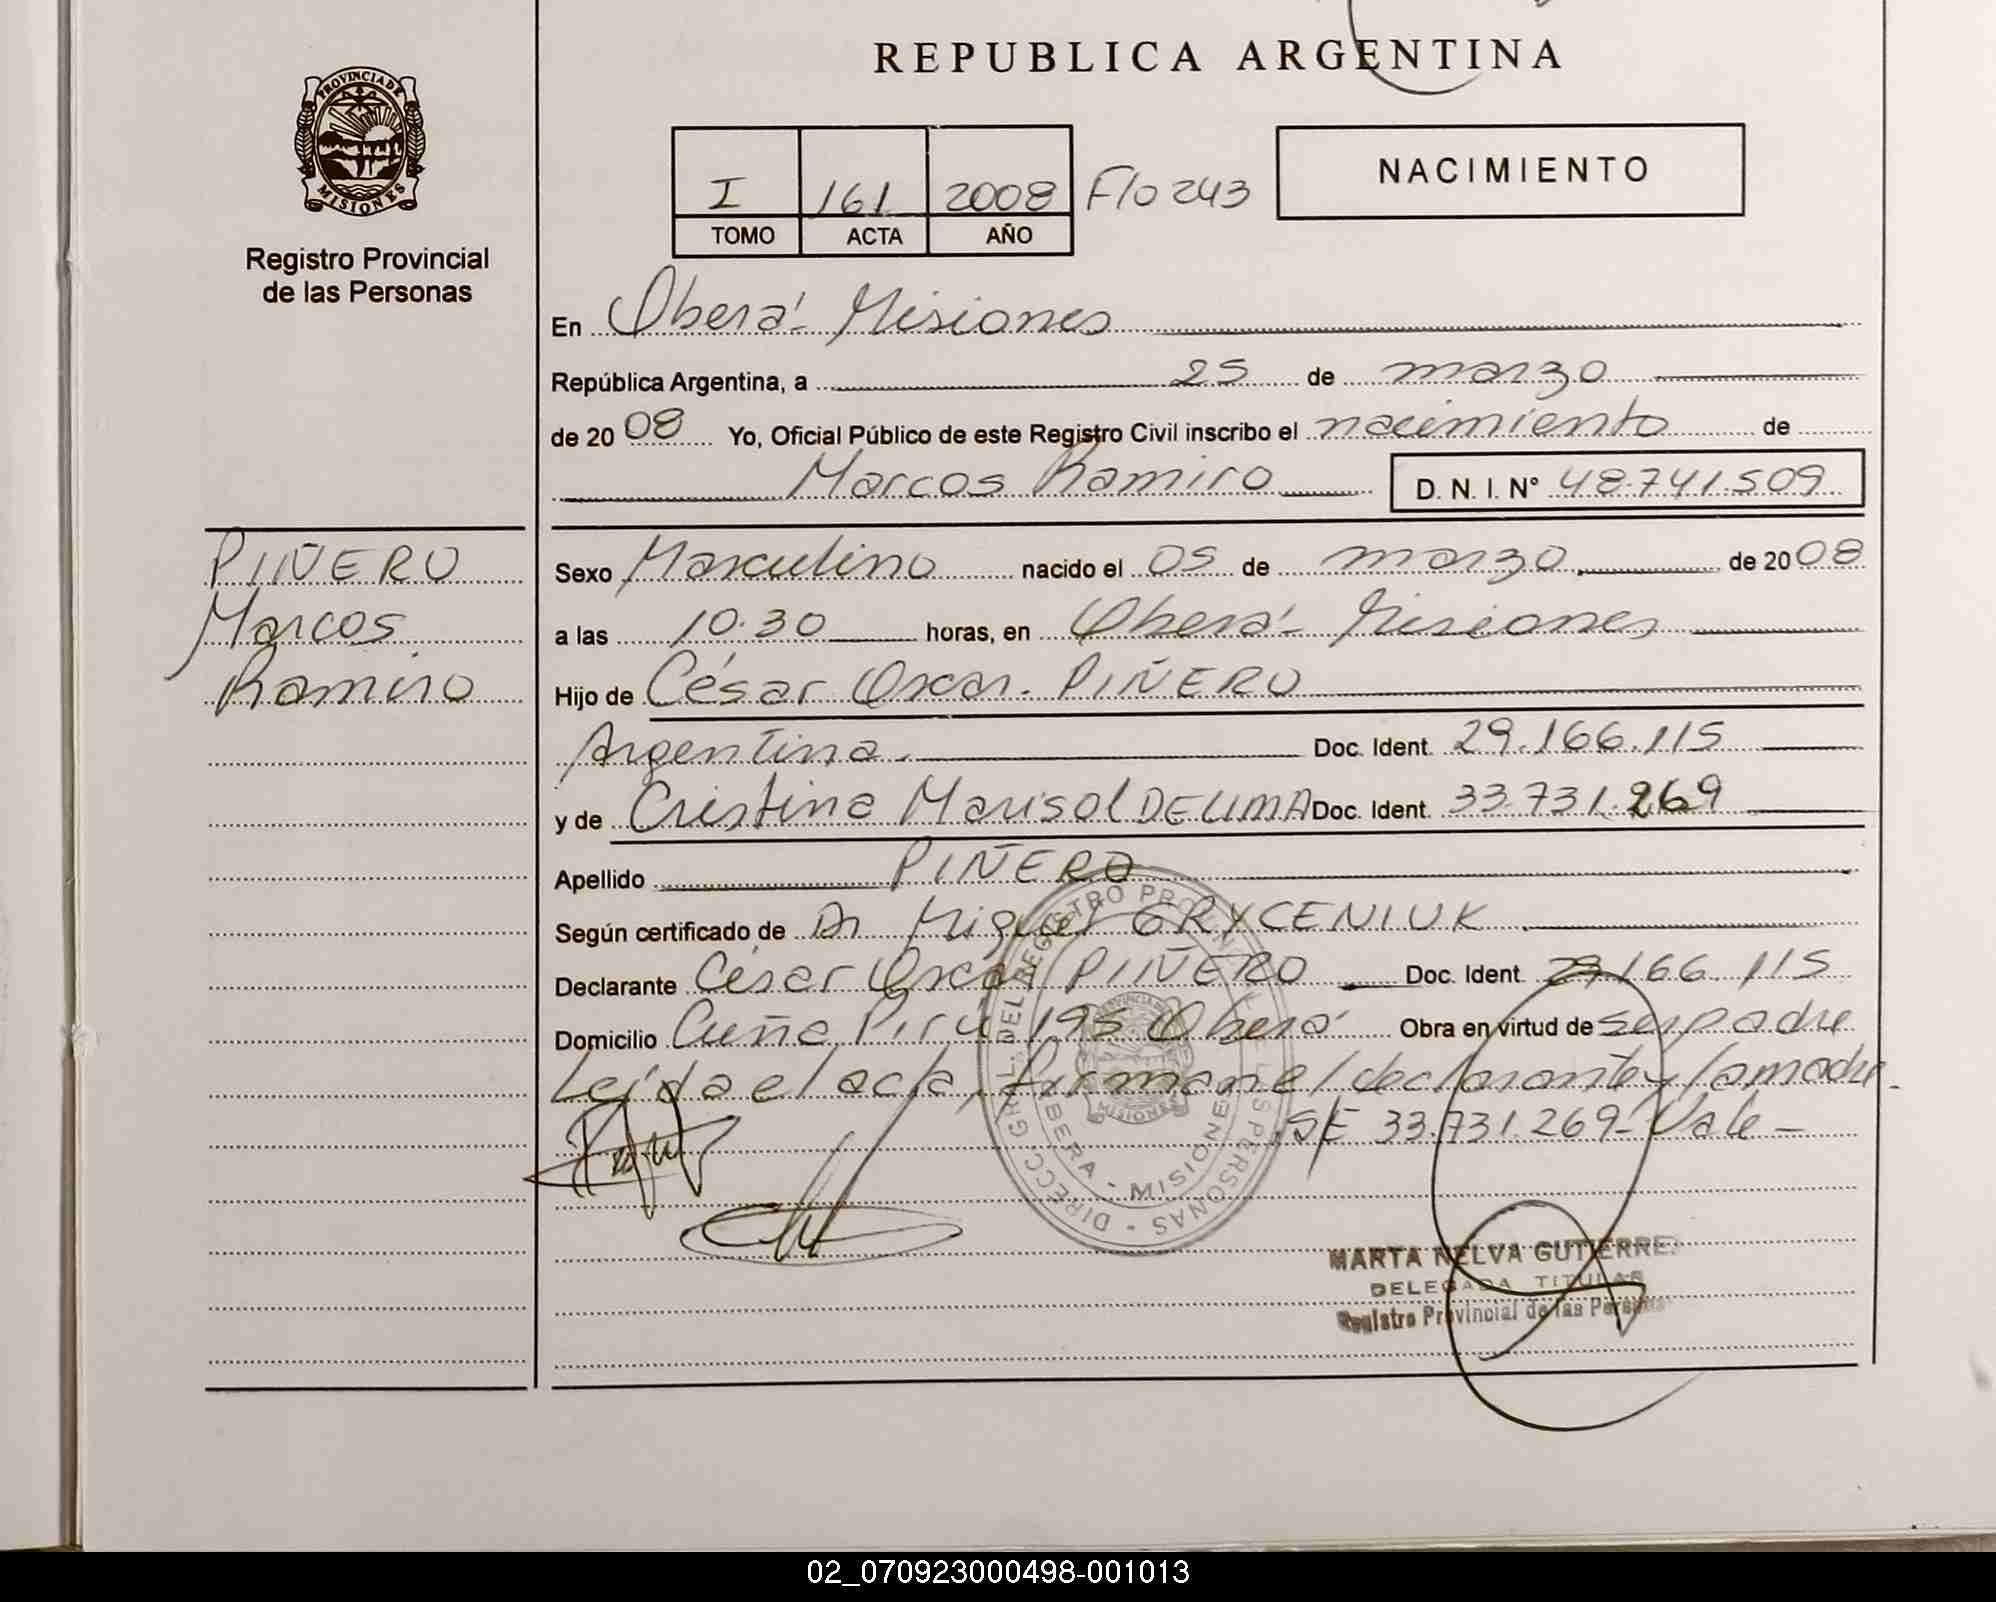 REPUBLICA ARGENTINA
PROVINCIA DE
MISIONES
Registro Provincial
de las Personas
I 161 2008 Flo 243
TOMO ACTA AÑO
NACIMIENTO
En Oberá - Misiones
República Argentina, a 25 de marzo
de 2008 Yo, Oficial Público de este Registro Civil inscribo el nacimiento de
Marcos Ramiro D. N. I. N° 48.741.509
PIÑERO
Marcos
Ramiro
Sexo Masculino nacido el 05 de marzo de 2008
a las 10.30 horas, en Oberá - Misiones
Hijo de César Oscar PIÑERO
Argentina. Doc. Ident. 29.166.115
y de Cristina Marisol DELIMA Doc. Ident. 33.731.269
Apellido PIÑERO
Según certificado de Dr Miguel GRYCENIUK
Declarante César Oscar PIÑERO Doc. Ident. 29.166.115
Domicilio Cuña Pirú 195 Oberá Obra en virtud de ser padre
Leída el acta, firman el declarante y la madre.
S/E 33.731.269 - Vale -
DIRECC. GRAL. DEL REGISTRO PROVINCIAL DE LAS PERSONAS -
OBERA - MISIONES
MARTA NELVA GUTIERREZ
DELEGADA TITULAR
Registro Provincial de las Personas
02_070923000498-001013